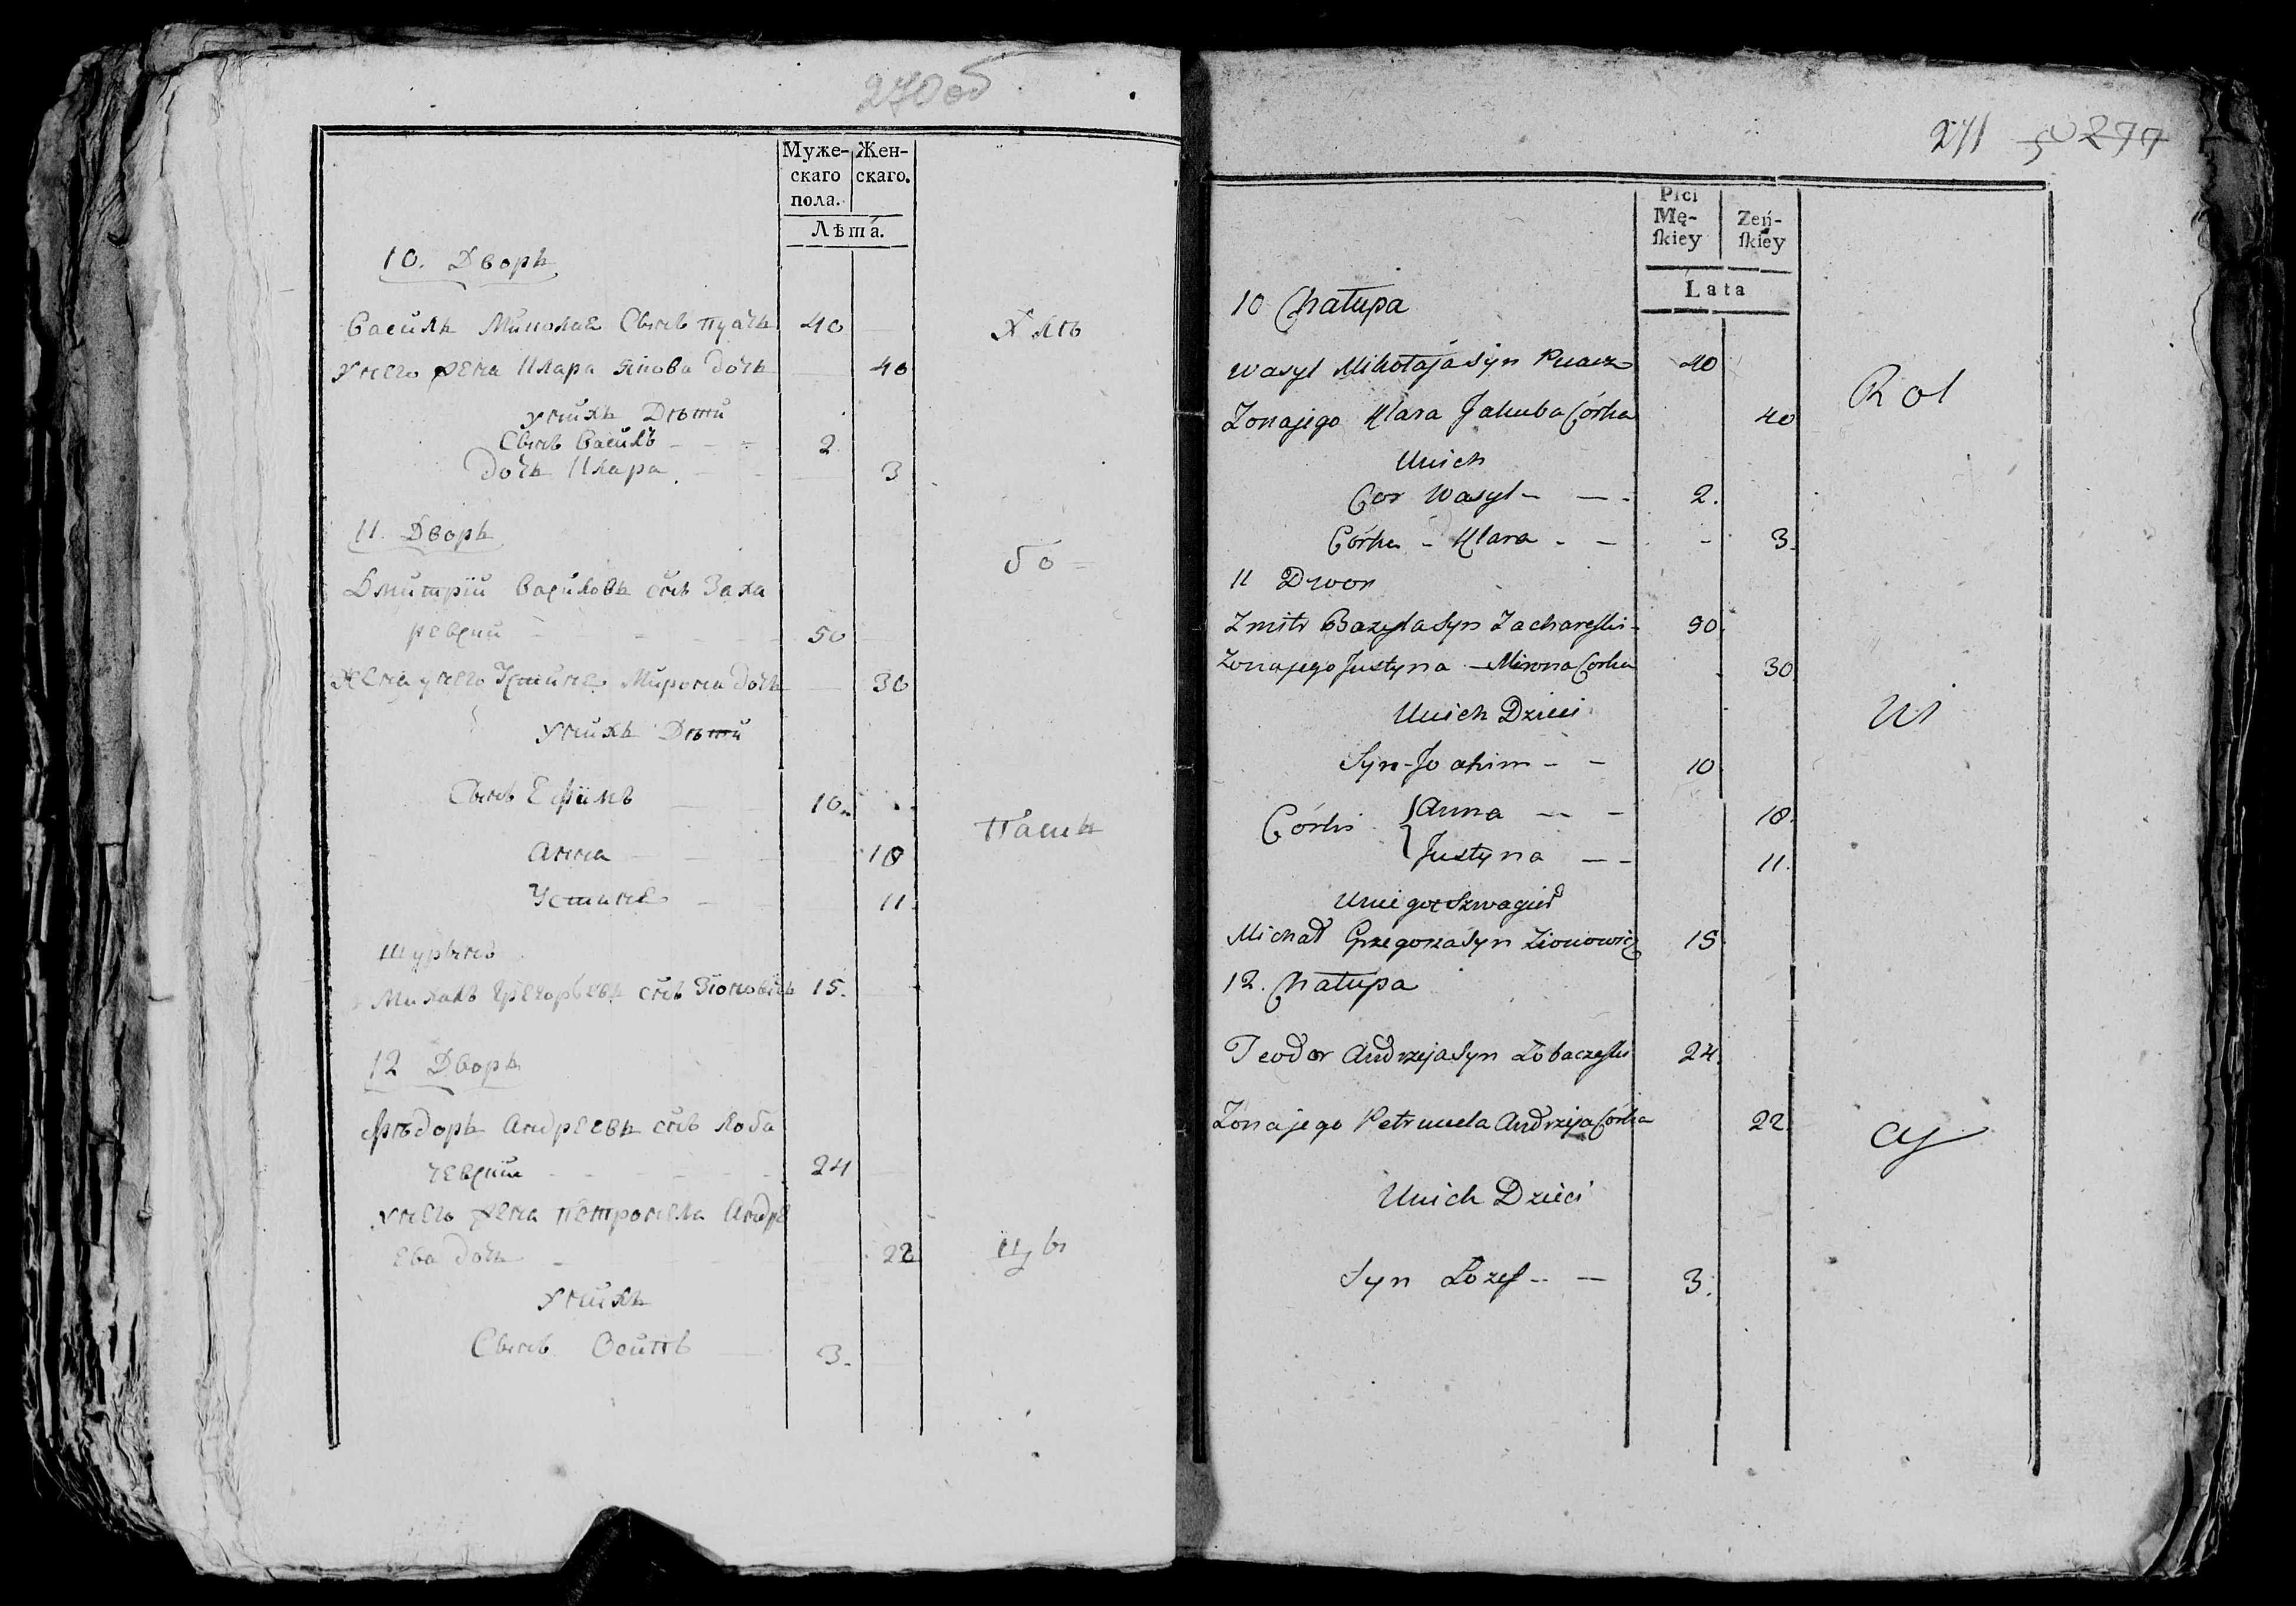 270об
Муже- Жен-
скаго скаго.
пола.
Лѣта.
10. Дворъ
Василь Миколая Сынъ Пуачъ 40
Унего жена Клара Якова дочь 40
Унихъ Дѣти
Сынъ Василъ - - - 2
дочь Клара - - 3
Хлѣ
11. Дворъ
бо =
Дмитрій Василовъ снъ Заха
ревскій - - - - 50
Жена унего Устиня Мирона дочь 30
Унихъ Дѣти
Сынъ Ефимъ 10
Анна 18
Устиня 11
Паш
Шурынъ
Михалъ Грегорьевъ снъ Зіоновичъ 15.
12 Дворъ
Ѳѣдоръ Андреевъ снъ Лоба
чевскій - - - 24
Унего жена Петронела Андре
ева дочь - 22
цы
Унихъ
Сынъ Осипъ 3.
271 277
Płci
Mę- Zeń-
ſkiey ſkiey
Lata
10 Chałupa
Wasyl Mikołaja Syn Puacz 40
Zona jego Klara Jakuba Córka 40
Rol
Unich
Wasyl - - - 2.
Córka - Klara - - - 3.
11 Dwor
Zmitr Bazyla Syn Zachareſki - 50
Zona jego Justyna - Mirona Corka 30
Unich Dzieci
ni
Syn - Joahim - - 10
Córki { Anna - - - 18.
Justyna - - 11.
Uniego Szwagier
Michał Grzegorza Syn Zionowicz 15
12. Chałupa
Teodor Andrzeja Syn Łobaczeſki 24
Zona jego Petrunela Andrzeja Córka 22
cy
Unich Dzieci
Syn Jozef - - - 3.